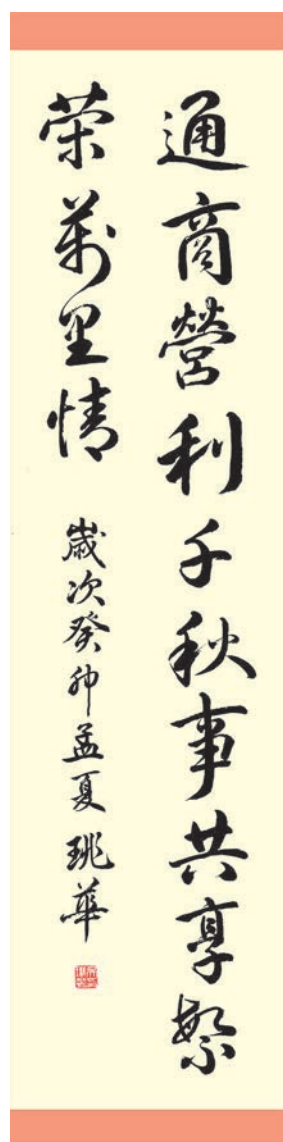 通商營利千秋事共享繁
荣萬里情
歲次癸卯孟夏 珧華